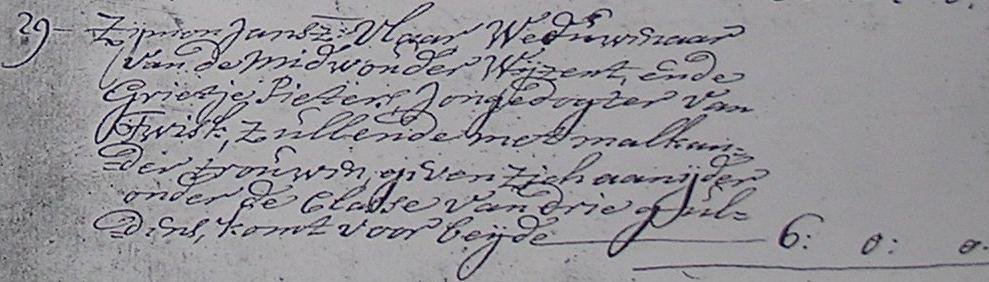 29 - Zijmon Jansz: Vlaar Weduwenaar
van de Midwouder Wijzent, ende
Grietje Pieters, Jongedogter van
Twisk, Zullende met malkan-
der trouwen, geven zich aan ijder
onder de Classe van drie gul-
dens, komt voor beijde 6: 0: 0.